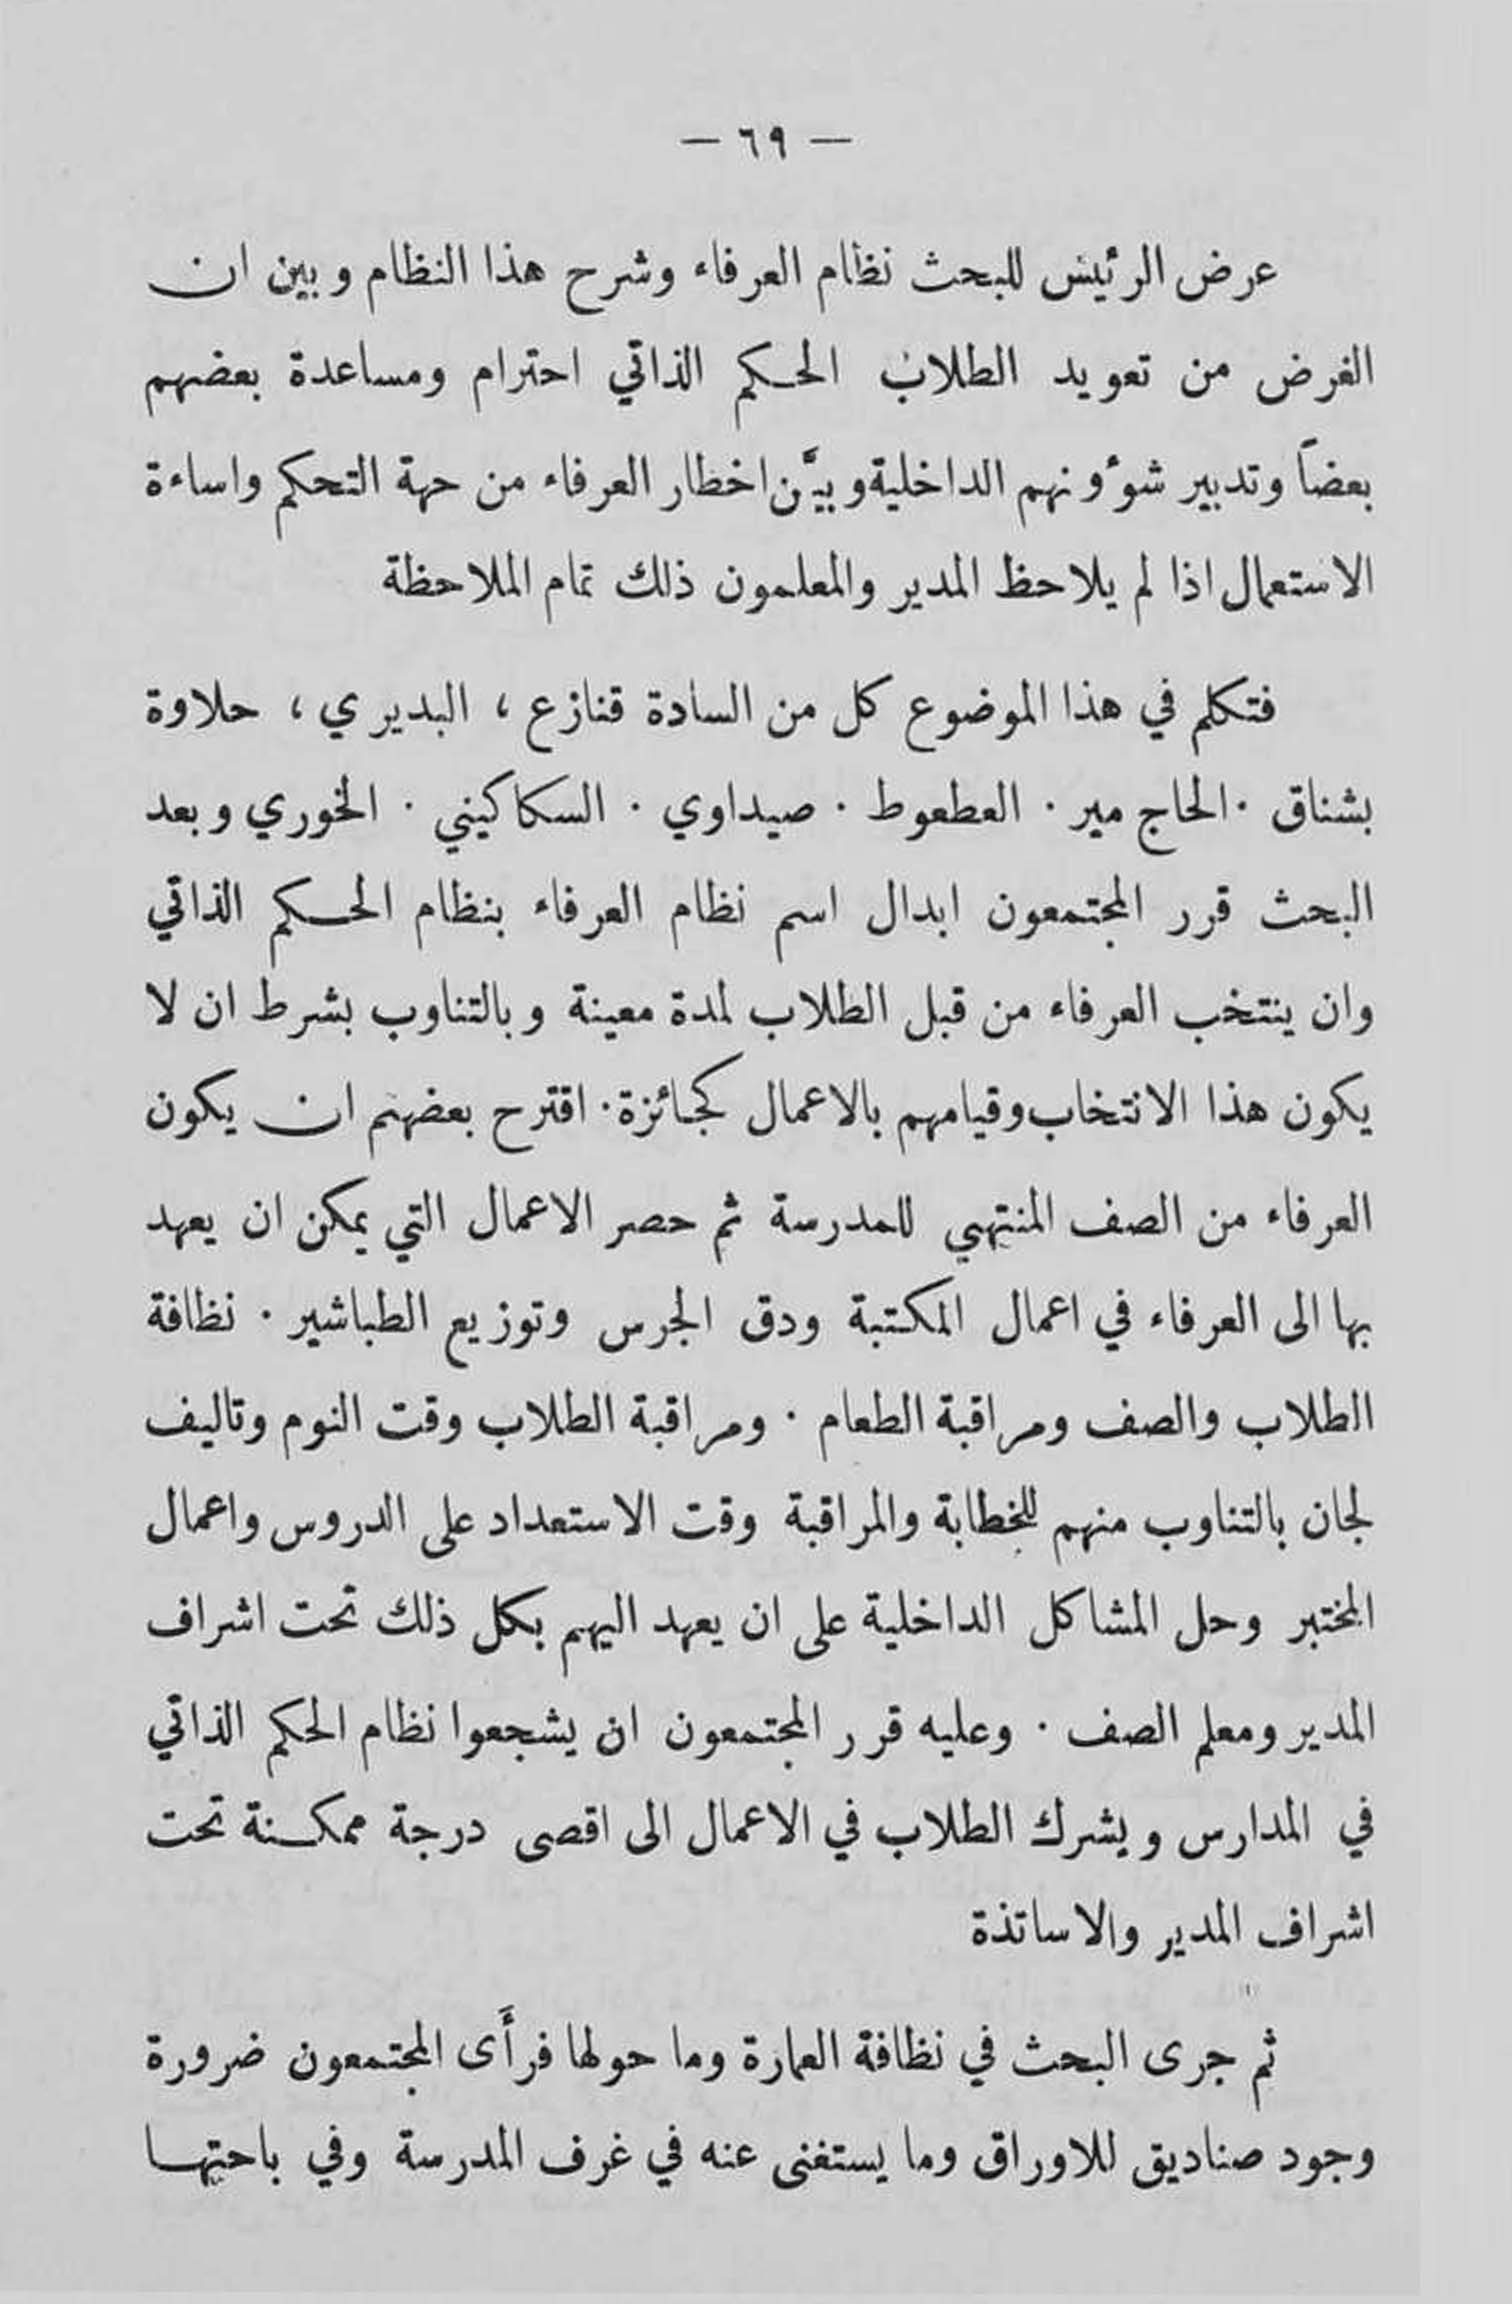 — ٦٩ —
عرض الرئيس للبحث نظام العرفاء وشرح هذا النظام وبين ان
الغرض من تعويد الطلاب الحكم الذاتي احترام ومساعدة بعضهم
بعضاً وتدبير شؤونهم الداخلية وبيَّن اخطار العرفاء من جهة التحكم واساءة
الاستعمال اذا لم يلاحظ المدير والمعلمون ذلك تمام الملاحظة
فتكلم في هذا الموضوع كل من السادة قنازع ، البديري ، حلاوة
بشناق . الحاج مير . العطعوط . صيداوي . السكاكيني . الخوري وبعد
البحث قرر المجتمعون ابدال اسم نظام العرفاء بنظام الحكم الذاتي
وان ينتخب العرفاء من قبل الطلاب لمدة معينة وبالتناوب بشرط ان لا
يكون هذا الانتخاب وقيامهم بالاعمال كجائزة . اقترح بعضهم ان يكون
العرفاء من الصف المنتهي للمدرسة ثم حصر الاعمال التي يمكن ان يعهد
بها الى العرفاء في اعمال المكتبة ودق الجرس وتوزيع الطباشير . نظافة
الطلاب والصف ومراقبة الطعام . ومراقبة الطلاب وقت النوم وتاليف
لجان بالتناوب منهم للخطابة والمراقبة وقت الاستعداد على الدروس واعمال
المختبر وحل المشاكل الداخلية على ان يعهد اليهم بكل ذلك تحت اشراف
المدير ومعلم الصف . وعليه قرر المجتمعون ان يشجعوا نظام الحكم الذاتي
في المدارس ويشرك الطلاب في الاعمال الى اقصى درجة ممكنة تحت
اشراف المدير والاساتذة
ثم جرى البحث في نظافة العمارة وما حولها فرأَى المجتمعون ضرورة
وجود صناديق للاوراق وما يستغنى عنه في غرف المدرسة وفي باحتها